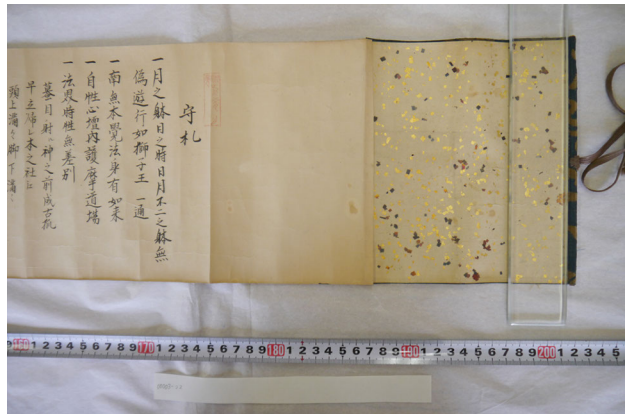 守札
一月之躰日之時日月不二之躰無
偽遊行如獅子王 一通
一南無本覺法身有如来
一自性心壇内護摩道場
一法界時性無差別
墓目射 神之前成古抓
早立帰レ本之社ニ
頭上満々脚下満々
9 160 1 2 3 4 5 6 7 8 9 170 1 2 3 4 5 6 7 8 9 180 1 2 3 4 5 6 7 8 9 190 1 2 3 4 5 6 7 8 9 200 1 2 3 4 5